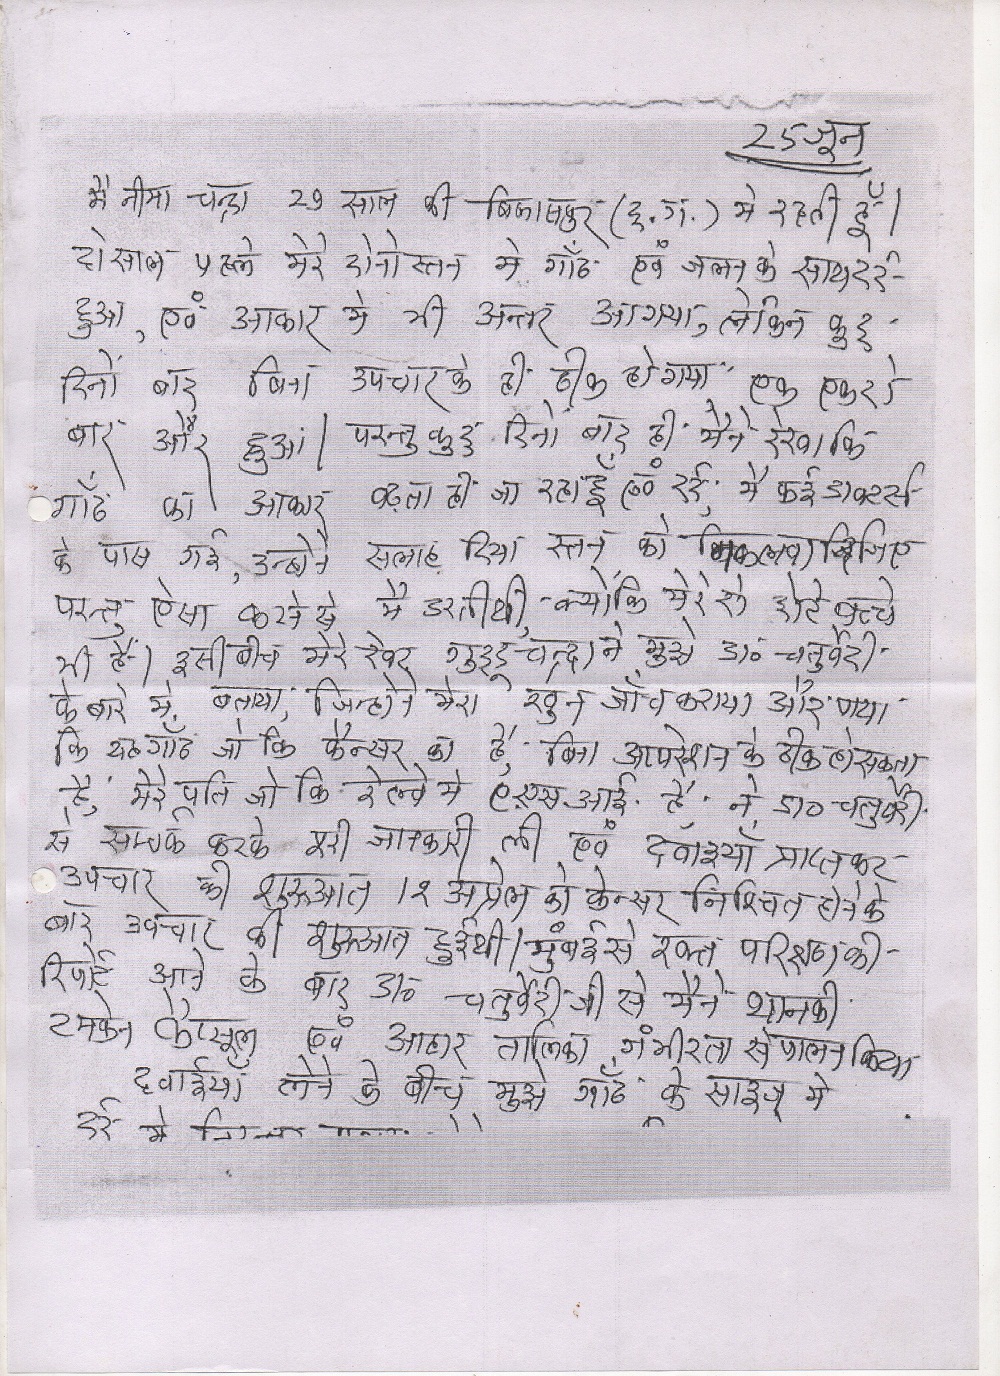 25 जून
मै नीमा चन्द्रा 29 साल की बिलासपुर (छ.ग.) मे रहती हूँ।
दो साल पहले मेरे दोनो स्तन मे गाँठ एवं जलन के साथ दर्द
हुआ, एवं आकार मे भी अन्तर आ गया, लेकिन कुछ
दिनों बाद बिना उपचार के ही ठीक हो गया एक एक दो
बार और हुआ। परन्तु कुछ दिनो बाद ही मैने देखा कि
गाँठ का आकार बढ़ता ही जा रहा हैं एवं दर्द, मै कई डाक्टर्स
के पास गई, उन्होने सलाह दिया स्तन को निकलवा दिजिए
परन्तु ऐसा करने से मै डरती थी, क्योंकि मेरे दो छोटे बच्चे
भी हैं। इसी बीच मेरे देवर गुड्डू चन्द्रा ने मुझे डा० चतुर्वेदी
के बारे मे, बताया, जिन्होने मेरा खुन जाँच कराया और पाया
कि यह गाँठ जो कि कैन्सर का है, बिना आपरेशन के ठीक हो सकता
है, मेरे पति जो कि रेल्वे मे ए.एस.आई. है ने डा० चतुर्वेदी
से सम्पर्क करके पूरी जानकारी ली एवं दवाँइयाँ प्राप्त कर
उपचार की शुरूआत 12 अप्रेल को केन्सर निश्चित होने के
बाद उपचार की शुरूआत हुई थी। मुंबई से रक्त परिक्षण की
रिपोर्ट आने के बाद डा० चतुर्वेदी जी से मैने
कैप्सूल एवं आहार तालिका, गंभीरता से पालन किया
दवाईयाँ लेने के बीच मुझे गाँठ के साइज मे
दर्द मे